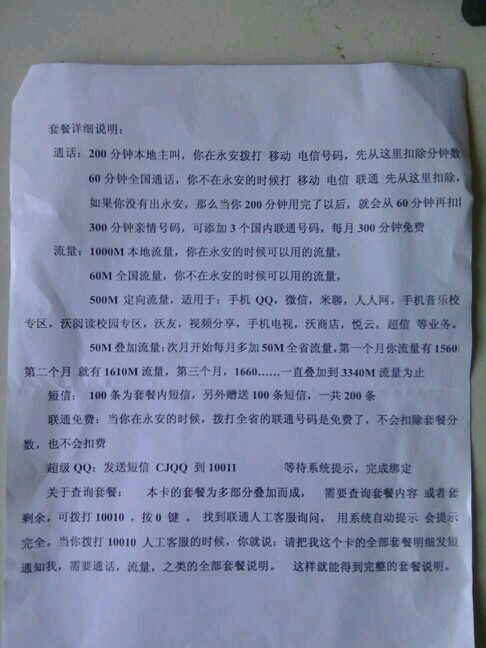 套餐详细说明:
通话: 200 分钟本地主叫, 你在永安拨打 移动 电信号码, 先从这里扣除分钟数
60 分钟全国通话, 你不在永安的时候打 移动 电信 联通 先从这里扣除,
如果你没有出永安, 那么当你 200 分钟用完了以后, 就会从 60 分钟再扣
300 分钟亲情号码, 可添加 3 个国内联通号码, 每月 300 分钟免费
流量: 1000M 本地流量, 你在永安的时候可以用的流量,
60M 全国流量, 你不在永安的时候可以用的流量,
500M 定向流量, 适用于: 手机 QQ, 微信, 米聊, 人人网, 手机音乐校
专区, 沃阅读校园专区, 沃友, 视频分享, 手机电视, 沃商店, 悦云, 超信 等业务。
50M 叠加流量: 次月开始每月多加 50M 全省流量, 第一个月你流量有 1560
第二个月 就有 1610M 流量, 第三个月, 1660……一直叠加到 3340M 流量为止
短信: 100 条为套餐内短信, 另外赠送 100 条短信, 一共 200 条
联通免费: 当你在永安的时候, 拨打全省的联通号码是免费了, 不会扣除套餐分
数, 也不会扣费
超级 QQ: 发送短信 CJQQ 到 10011 等待系统提示, 完成绑定
关于查询套餐: 本卡的套餐为多部分叠加而成, 需要查询套餐内容 或者套
剩余, 可拨打 10010 , 按 0 键 。 找到联通人工客服询问, 用系统自动提示 会提示
完全。当你拨打 10010 人工客服的时候, 你就说: 请把我这个卡的全部套餐明细发短
通知我, 需要通话, 流量, 之类的全部套餐说明。 这样就能得到完整的套餐说明。